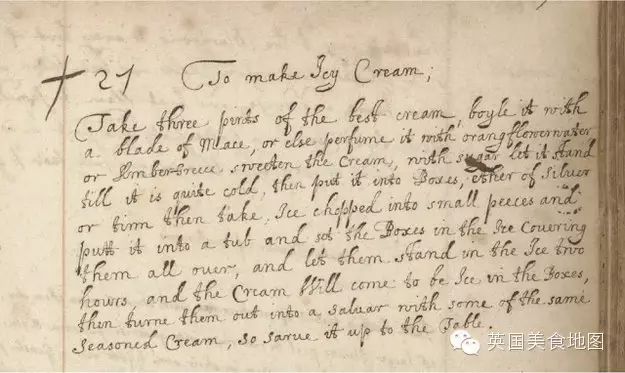 27 To make Icy Cream;
Take three pints of the best cream, boyle it with
a blade of Mace, or else perfume it with orangflowerwater
or Ambergreece sweeten the Cream, with sugar let it stand
till it is quite cold, then put it into Boxes, either of Siluer
or tinn then take, Ice chopped into small peeces and
putt it into a tub and set the Boxes in the Ice Couering
them all over, and let them stand in the Ice two
hours, and the Cream Will come to be Ice in the Boxes,
then turne them out into a saluar with some of the same
Seasoned Cream, so sarue it up to the Table.
英国美食地图